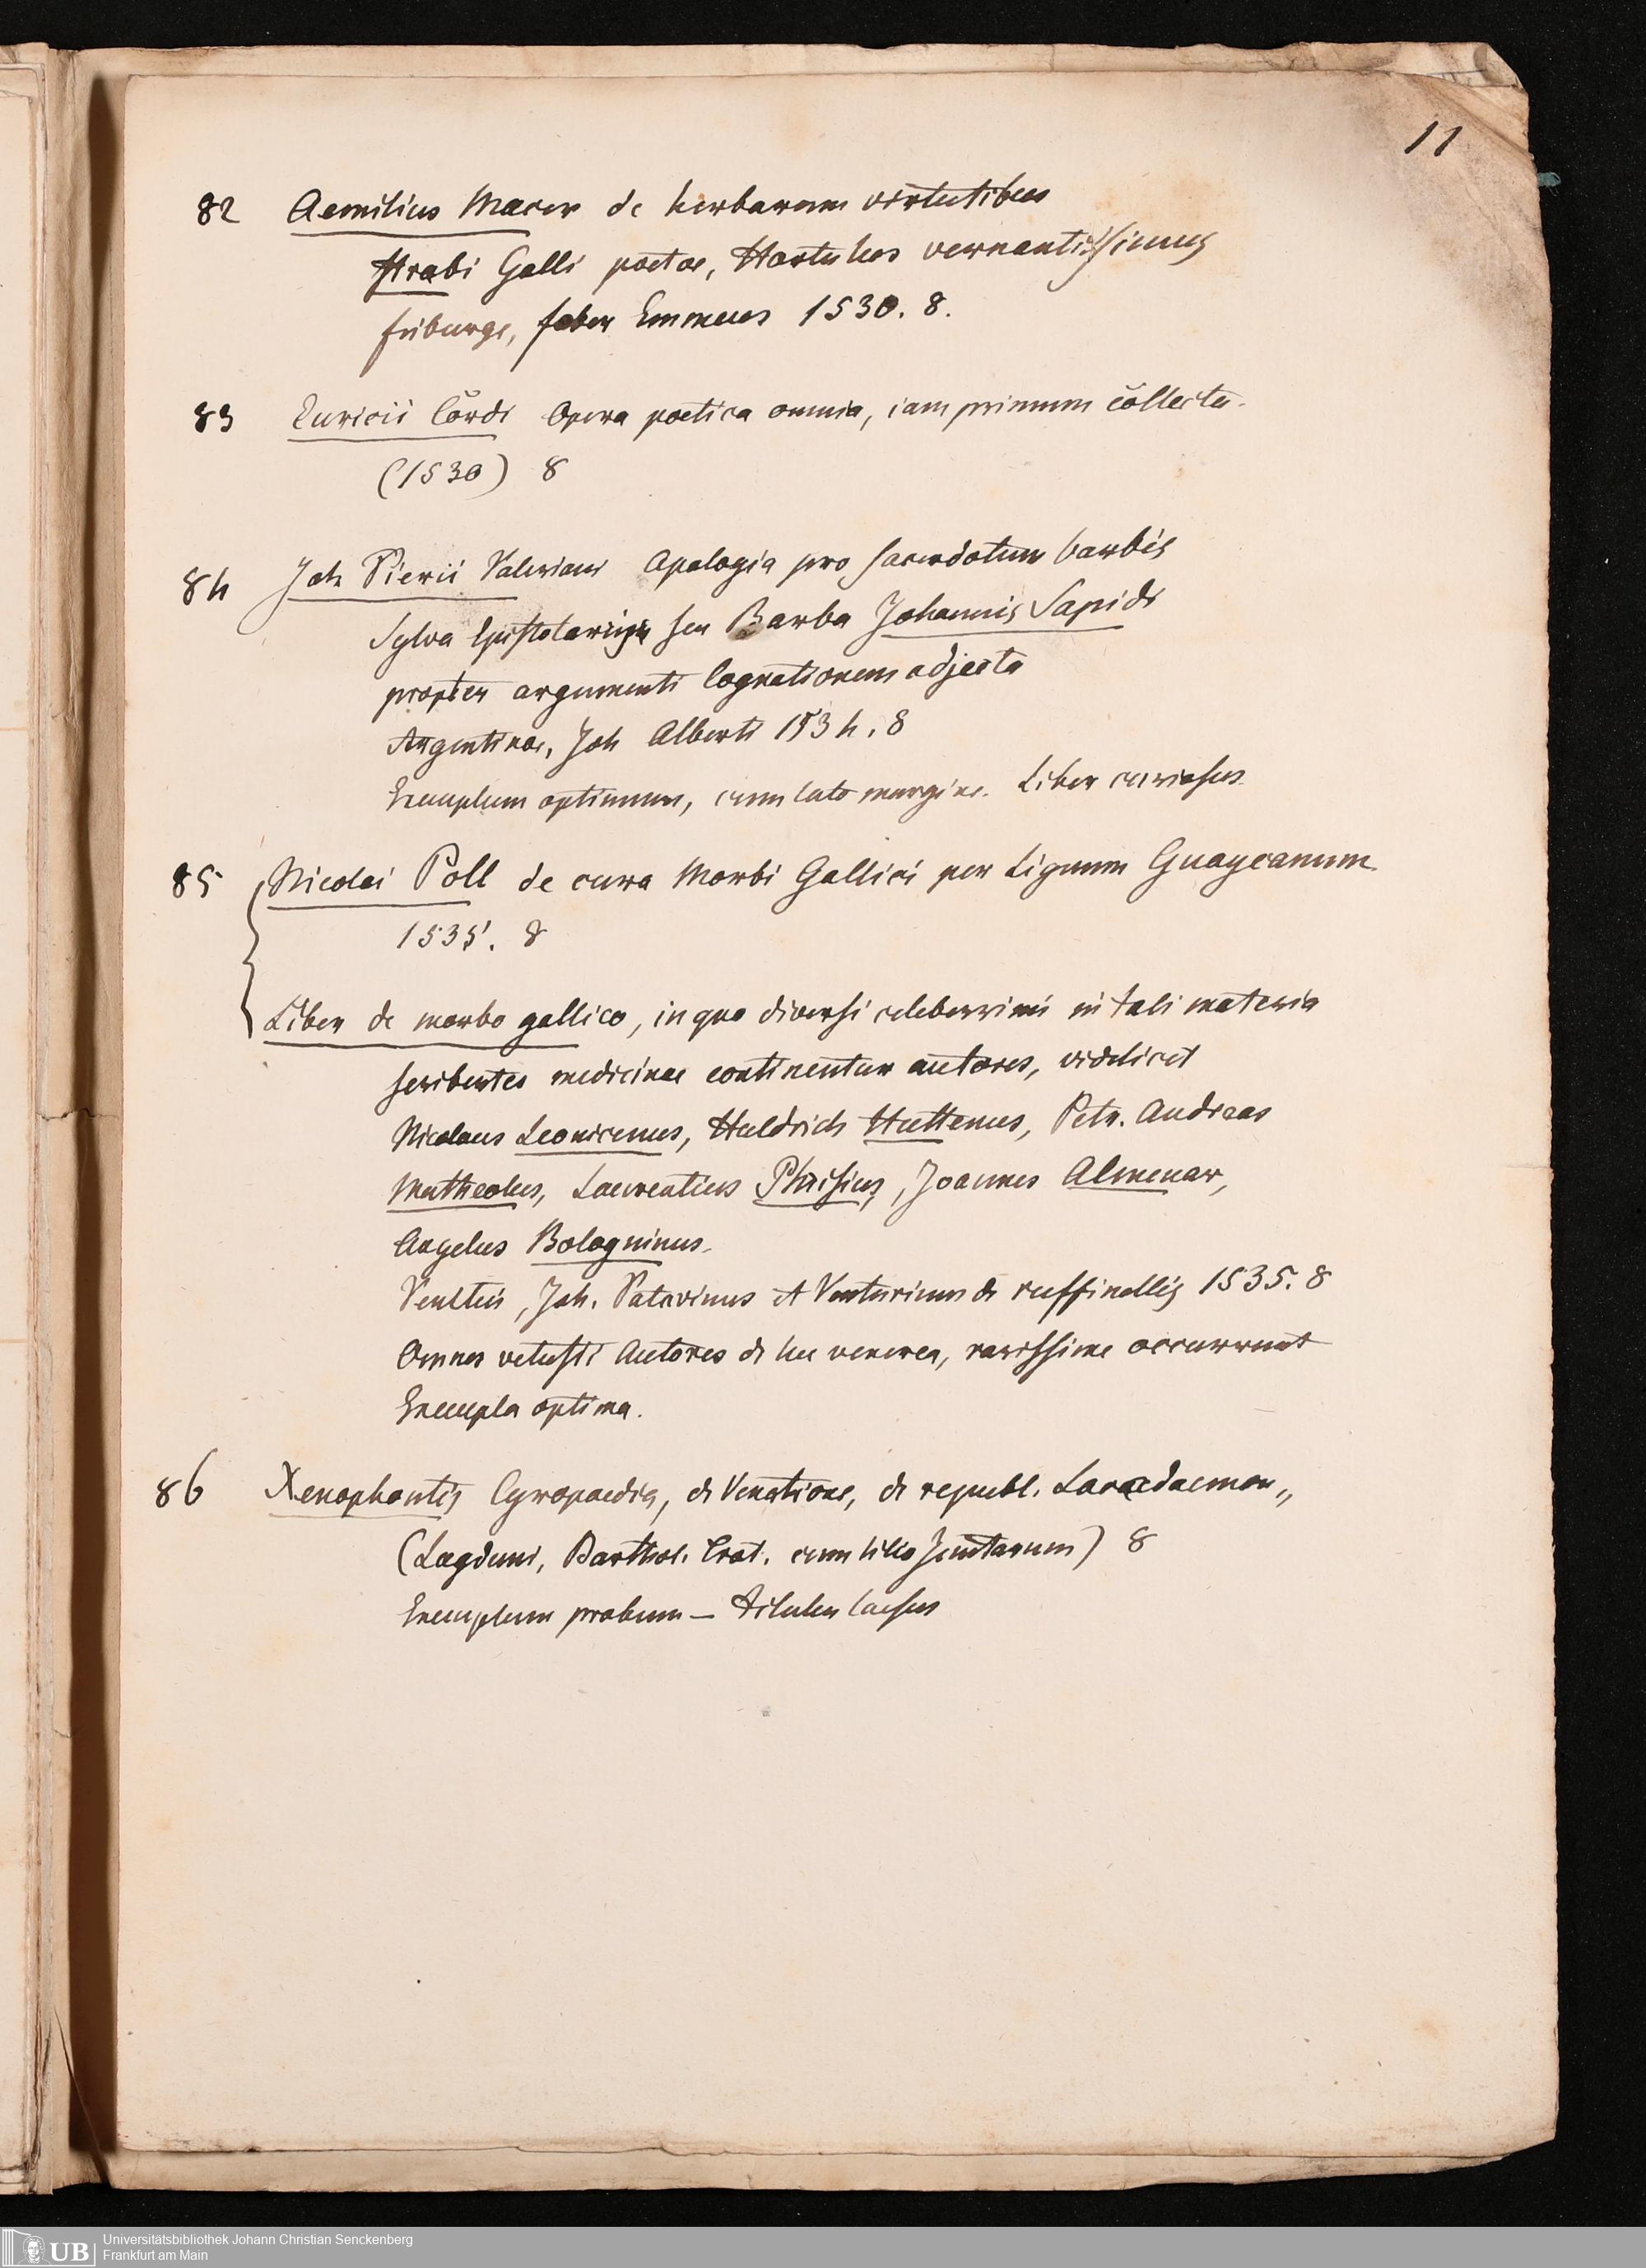 11
82 Aemilius Macer de herbarum virtutibus
Strabi Galli poetae, Hortulus vernantissimus
friburgi, faber Emmeus 1530. 8.
83 Euricii Cordi Opera poetica omnia, iam primum collecta.
(1530) 8
84 Joh Pierii Valeriani Apologia pro sacerdotum barbis
Sylva Epistolarum seu Barba Johannis Sapidi
propter argumenti Cognationem adjecta
Argentinae, Joh Alberti 1534. 8
Exemplum optimum, cum lato margine. Liber curiosus.
85 Nicolai Poll de cura Morbi Gallici per Lignum Guaycanum
1535. 8
Liber de morbo gallico, in quo diversi celeberrimi in tali materia
scribentes medicinae continentur autores, videlicet
Nicolaus Leonicenus, Huldrich Huttenus, Petr. Andreas
Matheolus, Laurentius Phrisius, Joannes Almenar,
Angelus Bologninus.
Venetiis, Joh. Patavinus et Venturinum de ruffinellis 1535. 8
Omnes vetusti Autores de lue venerea, rarissime occurrunt
Exempla optima.
86 Xenophontis Cyropaedia, de Venatione, de republ. Lacedaemon,,
(Lugduni, Barthol. Trot. cum lilio Juntarum) 8
Exemplum probum – titulus laesus
Universitätsbibliothek Johann Christian Senckenberg
Frankfurt am Main
UB